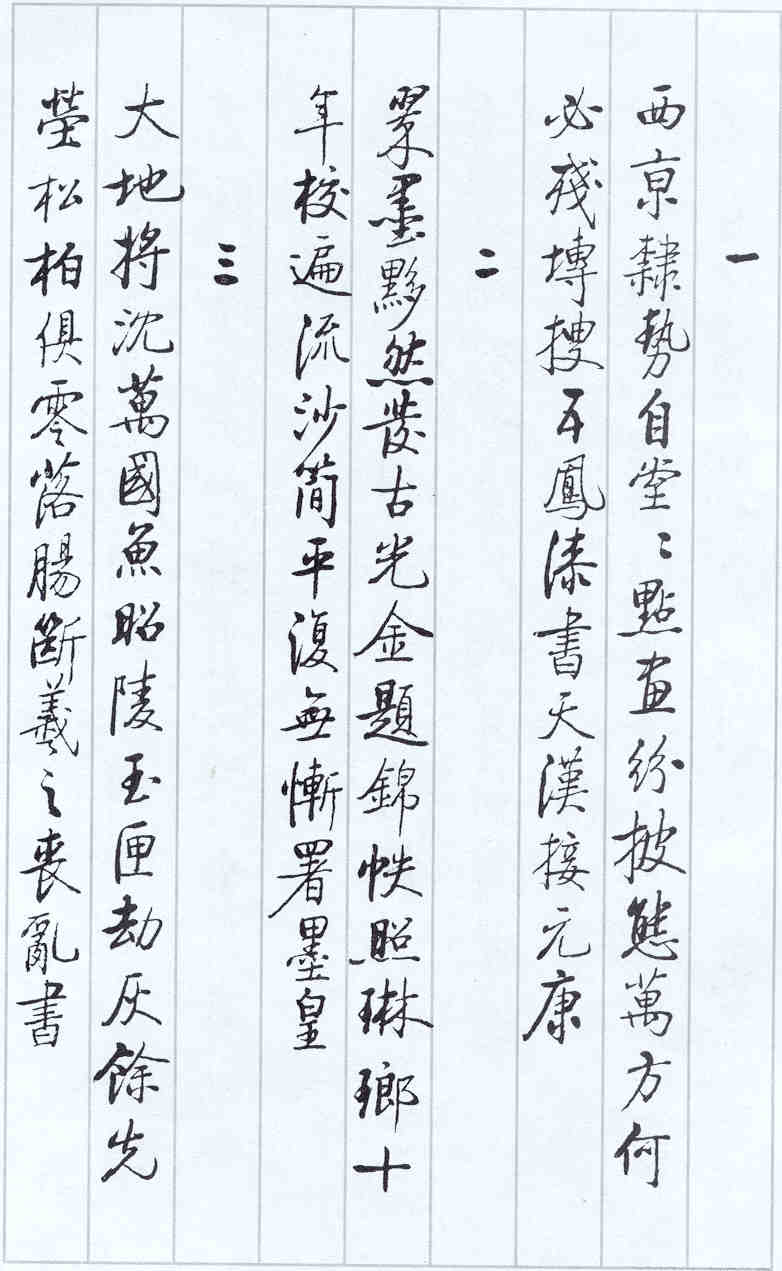 一
西京隸勢自堂〻點畫紛披態萬方何
必殘塼搜五鳳漆書天漢接元康
二
絫墨黟然發古光金題錦帙照琳瑯十
年校遍流沙簡平復無慚署墨皇
三
大地將沈萬國魚昭陵玉匣劫灰餘先
塋松柏俱零落腸斷羲之喪亂書